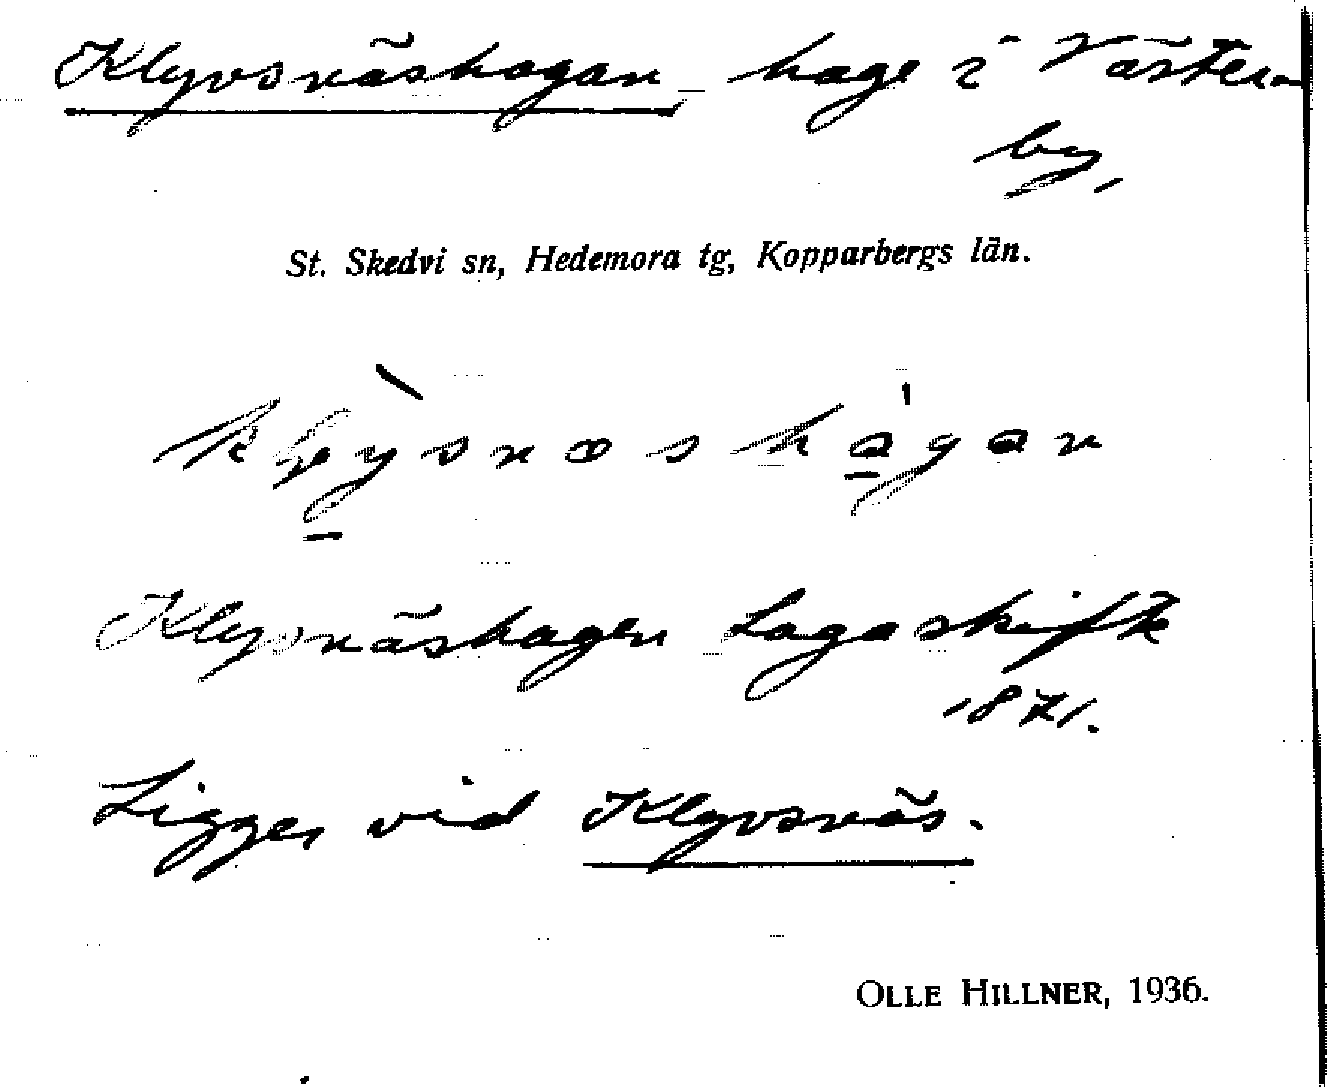 Klyvsnäshagan hage i Väster-
by,
St. Skedvi sn, Hedemora tg, Kopparbergs län.
Klysnäshagen Lagaskifte
1871.
Ligger vid Klyvsnäs.
OLLE HILLNER, 1936.